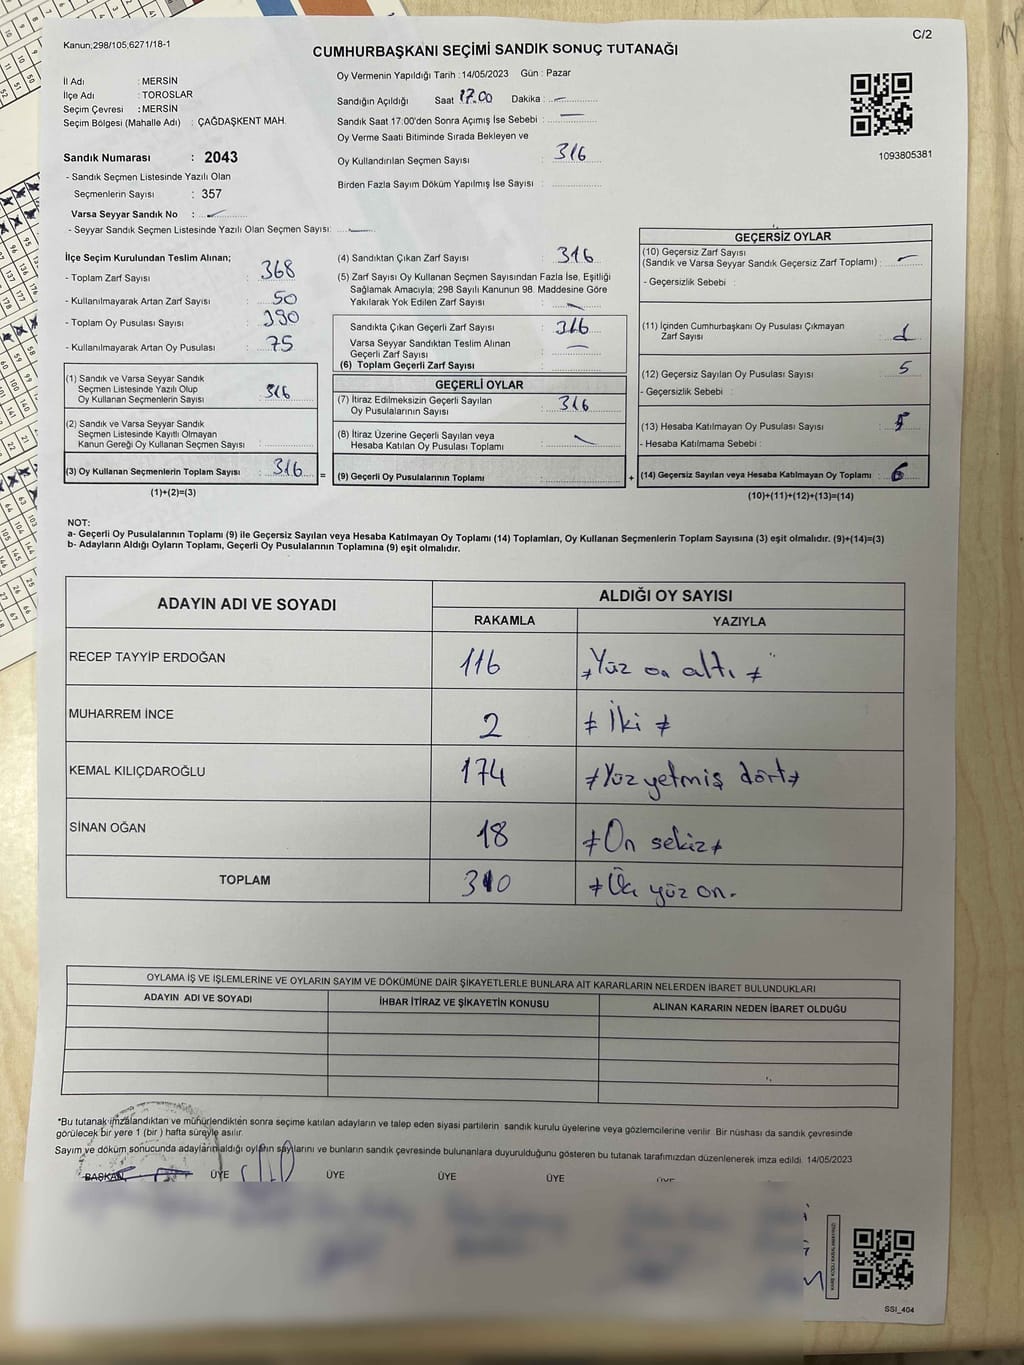 Kanun;298/105,6271/18-1
C/2
CUMHURBAŞKANI SEÇİMİ SANDIK SONUÇ TUTANAĞI
İl Adı : MERSİN
İlçe Adı : TOROSLAR
Seçim Çevresi : MERSİN
Seçim Bölgesi (Mahalle Adı) : ÇAĞDAŞKENT MAH.
Sandık Numarası : 2043
- Sandık Seçmen Listesinde Yazılı Olan
Seçmenlerin Sayısı : 357
Varsa Seyyar Sandık No :
- Seyyar Sandık Seçmen Listesinde Yazılı Olan Seçmen Sayısı:
Oy Vermenin Yapıldığı Tarih : 14/05/2023 Gün : Pazar
Sandığın Açıldığı Saat 17.00 Dakika :
Sandık Saat 17:00'den Sonra Açımış İse Sebebi :
Oy Verme Saati Bitiminde Sırada Bekleyen ve
Oy Kullandırılan Seçmen Sayısı : 316
Birden Fazla Sayım Döküm Yapılmış İse Sayısı :
1093805381
İlçe Seçim Kurulundan Teslim Alınan;
- Toplam Zarf Sayısı : 368
- Kullanılmayarak Artan Zarf Sayısı : 50
- Toplam Oy Pusulası Sayısı : 390
- Kullanılmayarak Artan Oy Pusulası : 75
(1) Sandık ve Varsa Seyyar Sandık
Seçmen Listesinde Yazılı Olup
Oy Kullanan Seçmenlerin Sayısı : 316
(2) Sandık ve Varsa Seyyar Sandık
Seçmen Listesinde Kayıtlı Olmayan
Kanun Gereği Oy Kullanan Seçmen Sayısı :
(3) Oy Kullanan Seçmenlerin Toplam Sayısı : 316 =
(1)+(2)=(3)
(4) Sandıktan Çıkan Zarf Sayısı : 316
(5) Zarf Sayısı Oy Kullanan Seçmen Sayısından Fazla İse, Eşitliği
Sağlamak Amacıyla; 298 Sayılı Kanunun 98. Maddesine Göre
Yakılarak Yok Edilen Zarf Sayısı :
Sandıkta Çıkan Geçerli Zarf Sayısı : 316
Varsa Seyyar Sandıktan Teslim Alınan
Geçerli Zarf Sayısı :
(6) Toplam Geçerli Zarf Sayısı :
GEÇERLİ OYLAR
(7) İtiraz Edilmeksizin Geçerli Sayılan
Oy Pusulalarının Sayısı : 316
(8) İtiraz Üzerine Geçerli Sayılan veya
Hesaba Katılan Oy Pusulası Toplamı :
(9) Geçerli Oy Pusulalarının Toplamı : +
GEÇERSİZ OYLAR
(10) Geçersiz Zarf Sayısı
(Sandık ve Varsa Seyyar Sandık Geçersiz Zarf Toplamı) :
- Geçersizlik Sebebi :
(11) İçinden Cumhurbaşkanı Oy Pusulası Çıkmayan
Zarf Sayısı :
(12) Geçersiz Sayılan Oy Pusulası Sayısı : 5
- Geçersizlik Sebebi :
(13) Hesaba Katılmayan Oy Pusulası Sayısı :
- Hesaba Katılmama Sebebi :
(14) Geçersiz Sayılan veya Hesaba Katılmayan Oy Toplamı : 6
(10)+(11)+(12)+(13)=(14)
NOT:
a- Geçerli Oy Pusulalarının Toplamı (9) ile Geçersiz Sayılan veya Hesaba Katılmayan Oy Toplamı (14) Toplamları, Oy Kullanan Seçmenlerin Toplam Sayısına (3) eşit olmalıdır. (9)+(14)=(3)
b- Adayların Aldığı Oyların Toplamı, Geçerli Oy Pusulalarının Toplamına (9) eşit olmalıdır.
ADAYIN ADI VE SOYADI
ALDIĞI OY SAYISI
RAKAMLA YAZIYLA
RECEP TAYYİP ERDOĞAN 116 Yüz on altı
MUHARREM İNCE 2 İki
KEMAL KILIÇDAROĞLU 174 Yüz yetmiş dört
SİNAN OĞAN 18 On sekiz
TOPLAM 310 Üç yüz on
OYLAMA İŞ VE İŞLEMLERİNE VE OYLARIN SAYIM VE DÖKÜMÜNE DAİR ŞİKAYETLERLE BUNLARA AİT KARARLARIN NELERDEN İBARET BULUNDUKLARI
ADAYIN ADI VE SOYADI İHBAR İTİRAZ VE ŞİKAYETİN KONUSU ALINAN KARARIN NEDEN İBARET OLDUĞU
*Bu tutanak imzalandıktan ve mühürlendikten sonra seçime katılan adayların ve talep eden siyasi partilerin sandık kurulu üyelerine veya gözlemcilerine verilir. Bir nüshası da sandık çevresinde
görülecek bir yere 1 (bir ) hafta süreyle asılır.
Sayım ve döküm sonucunda adayların aldığı oyların sayılarını ve bunların sandık çevresinde bulunanlara duyurulduğunu gösteren bu tutanak tarafımızdan düzenlenerek imza edildi. 14/05/2023
BAŞKAN ÜYE ÜYE ÜYE ÜYE ÜYE
SSI_404